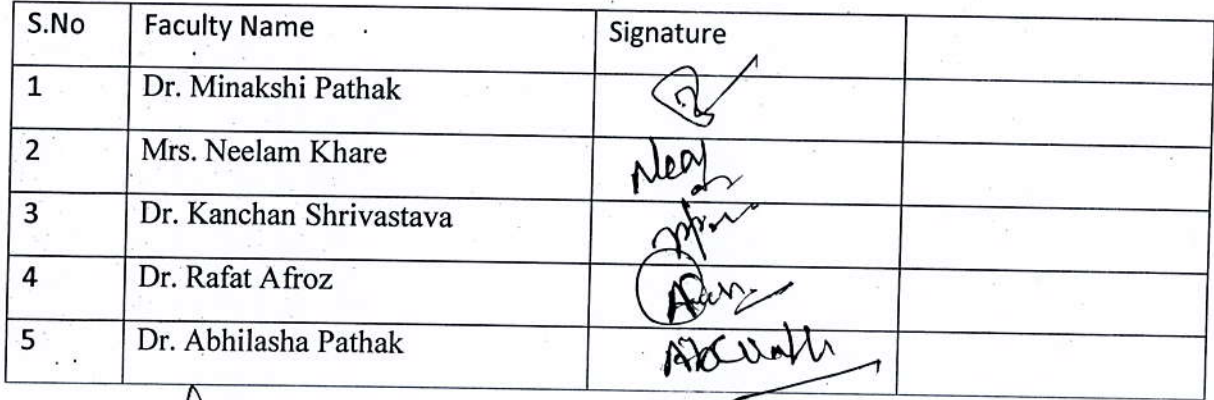 S.No Faculty Name Signature
1 Dr. Minakshi Pathak
2 Mrs. Neelam Khare
3 Dr. Kanchan Shrivastava
4 Dr. Rafat Afroz
5 Dr. Abhilasha Pathak